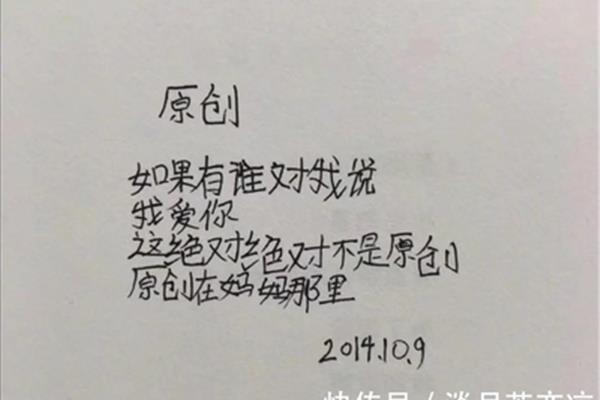 原创
如果有谁对我说
我爱你
这绝对绝对不是原创
原创在妈妈那里
2014.10.9